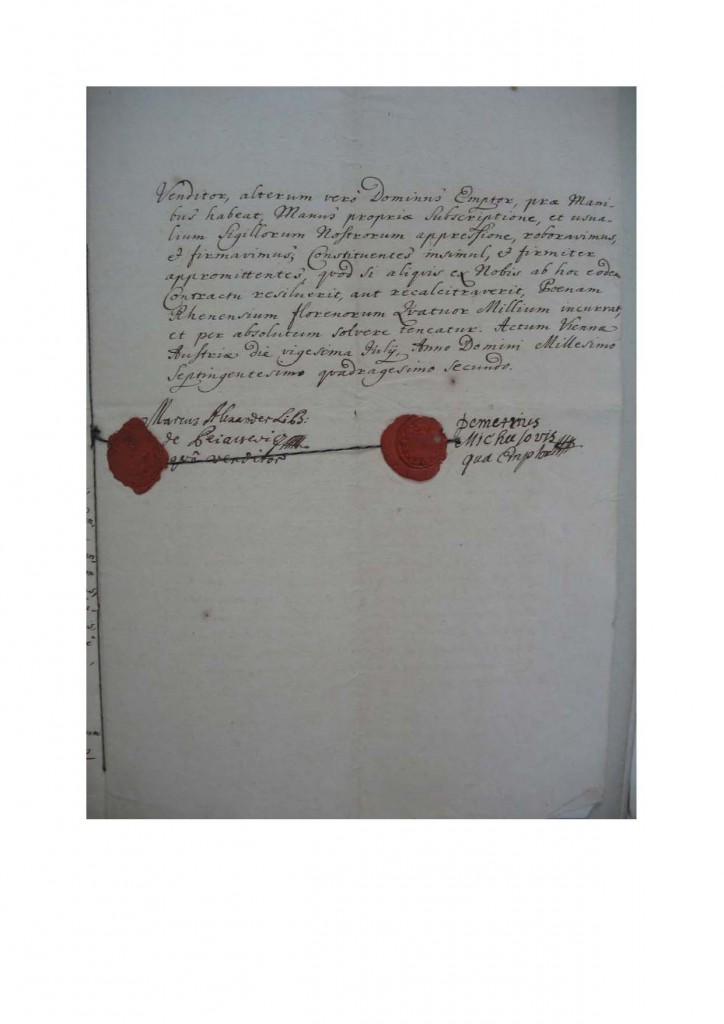 Venditor, alterum verò Dominus Emptor, præ Mani-
bus habeat, Manus propriæ Subscriptione, et usua-
lium Sigillorum Nostrorum appressione, roboravimus,
et firmavimus; Constituentes insimul, et firmiter
appromittentes, quòd si aliquis ex Nobis ab hoc eodem
Contractu resiluerit, aut recalcitraverit, Poenam
Rhenensium florenorum Quatuor Millium incurrat,
et per absolutum solvere teneatur. Actum Viennæ
Austriæ die vigesima Julij, Anno Domini Millesimo
Septingentesimo quadragesimo secundo.
Marcus Alexander Lib:
de
quà venditor
Demetrius
Michajovis
qua Emptor